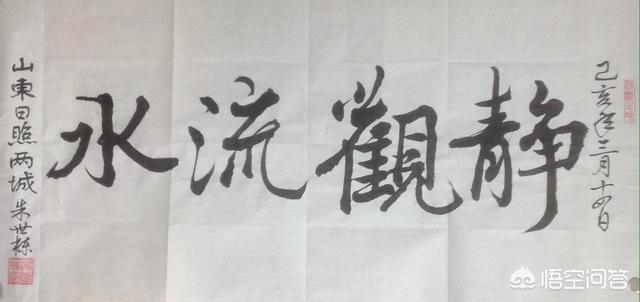 己亥年三月十四日
静觀流水
山東日照两城朱世栋
悟空问答